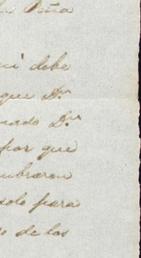 de Peña
debe
que Dn
nado Dn
por que
mbraron
solo para
o de los